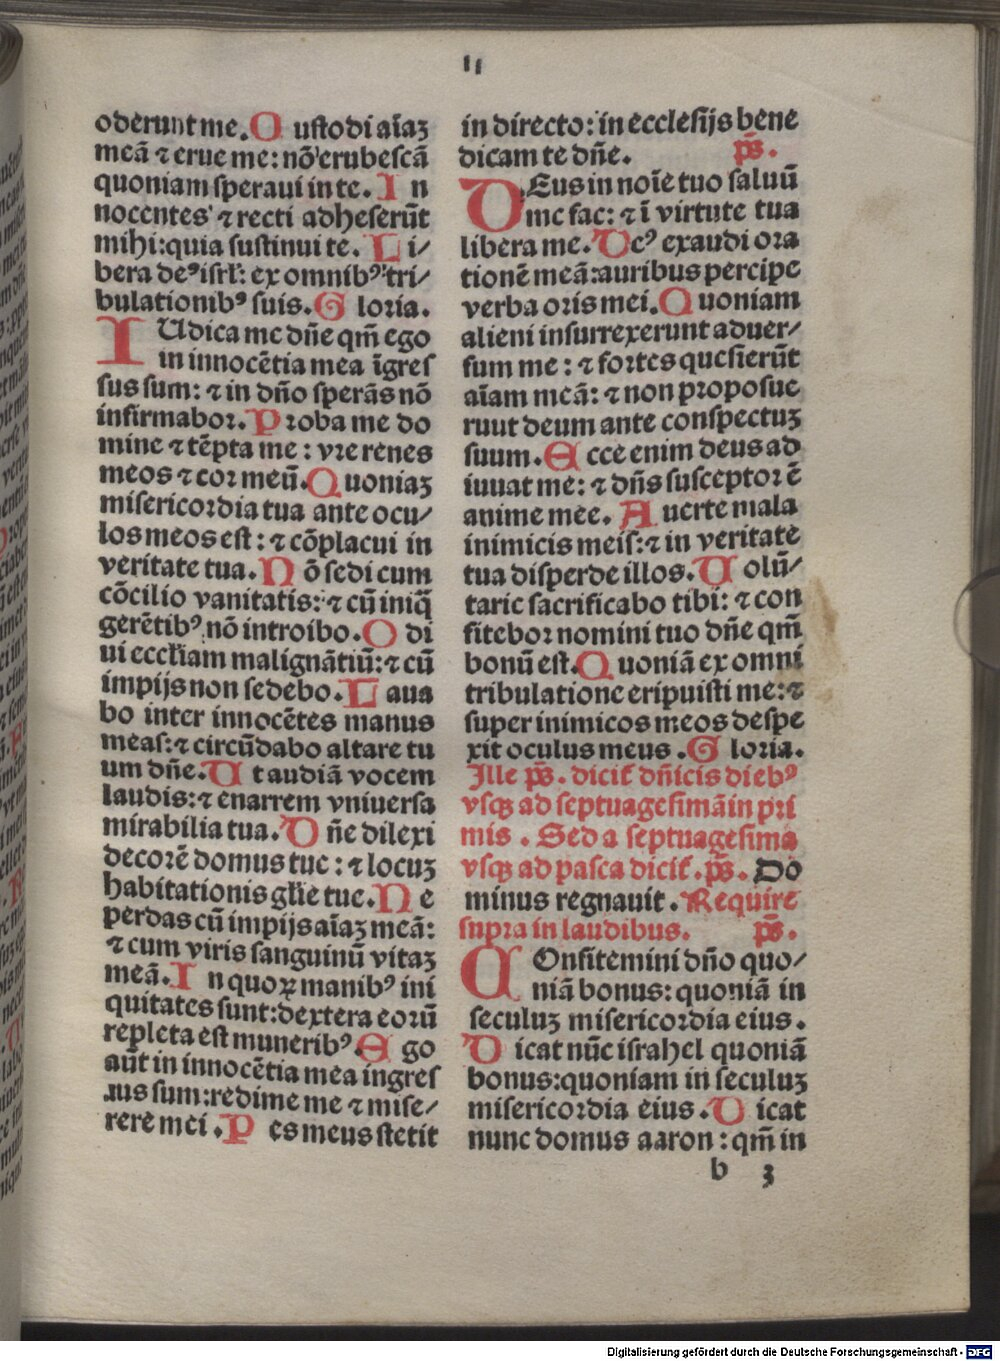 11
oderunt me. Custodi aīaꝫ
meā ⁊ erue me: nō erubescā
quoniam speraui in te. In
nocentes ⁊ recti adheserūt
mihi: quia sustinui te. Li/
bera deꝰ isrł: ex omnibꝰ tri/
bulationibꝰ suis. Gloria.
IUdica me dn̄e qm̄ ego
in innocētia mea īgres
sus sum: ⁊ in dn̄o sperās nō
infirmabor. Proba me do
mine ⁊ tēpta me: vre renes
meos ⁊ cor meū. Quoniaꝫ
misericordia tua ante ocu/
los meos est: ⁊ cōplacui in
veritate tua. Nō sedi cum
cōcilio vanitatis: ⁊ cū iniq̄
gerētibꝰ nō introibo. Odi
ui eccłiam malignātiū: ⁊ cū
impijs non sedebo. Laua
bo inter innocētes manus
meas: ⁊ circūdabo altare tu
um dn̄e. Ut audiā vocem
laudis: ⁊ enarrem vniuersa
mirabilia tua. Dn̄e dilexi
decorē domus tue: ⁊ locuꝫ
habitationis głie tue. Ne
perdas cū impijs aīaꝫ meā:
⁊ cum viris sanguinū vitaꝫ
meā. In quoꝝ manibꝰ ini
quitates sunt: dextera eorū
repleta est muneribꝰ. Ego
aūt in innocētia mea ingres
sus sum: redime me ⁊ mise/
rere mei. Pes meus stetit
in directo: in ecclesijs bene
dicam te dn̄e. ps̄.
DEus in noīe tuo saluū
me fac: ⁊ ī virtute tua
libera me. Deꝰ exaudi ora
tionē meā: auribus percipe
verba oris mei. Quoniam
alieni insurrexerunt aduer/
sum me: ⁊ fortes quesierūt
aīam meā: ⁊ non proposue
runt deum ante conspectuꝫ
suum. Ecce enim deus ad
iuuat me: ⁊ dn̄s susceptor ē
anime mee. Auerte mala
inimicis meis: ⁊ in veritate
tua disperde illos. Uolū/
tarie sacrificabo tibi: ⁊ con
fitebor nomini tuo dn̄e qm̄
bonū est. Quoniā ex omni
tribulatione eripuisti me: ⁊
super inimicos meos despe
xit oculus meus. Gloria.
Ille ps̄. dicit᷑ dn̄icis diebꝰ
vsqꝫ ad septuagesimā in pri
mis. Sed a septuagesima
vsqꝫ ad pasca dicit᷑. ps̄. Do
minus regnauit. Require
supra in laudibus. ps̄.
COnfitemini dn̄o quo/
niā bonus: quoniā in
seculuꝫ misericordia eius.
Dicat nūc israhel quoniā
bonus: quoniam in seculuꝫ
misericordia eius. Dicat
nunc domus aaron: qm̄ in
b 3
Digitalisierung gefördert durch die Deutsche Forschungsgemeinschaft - DFG